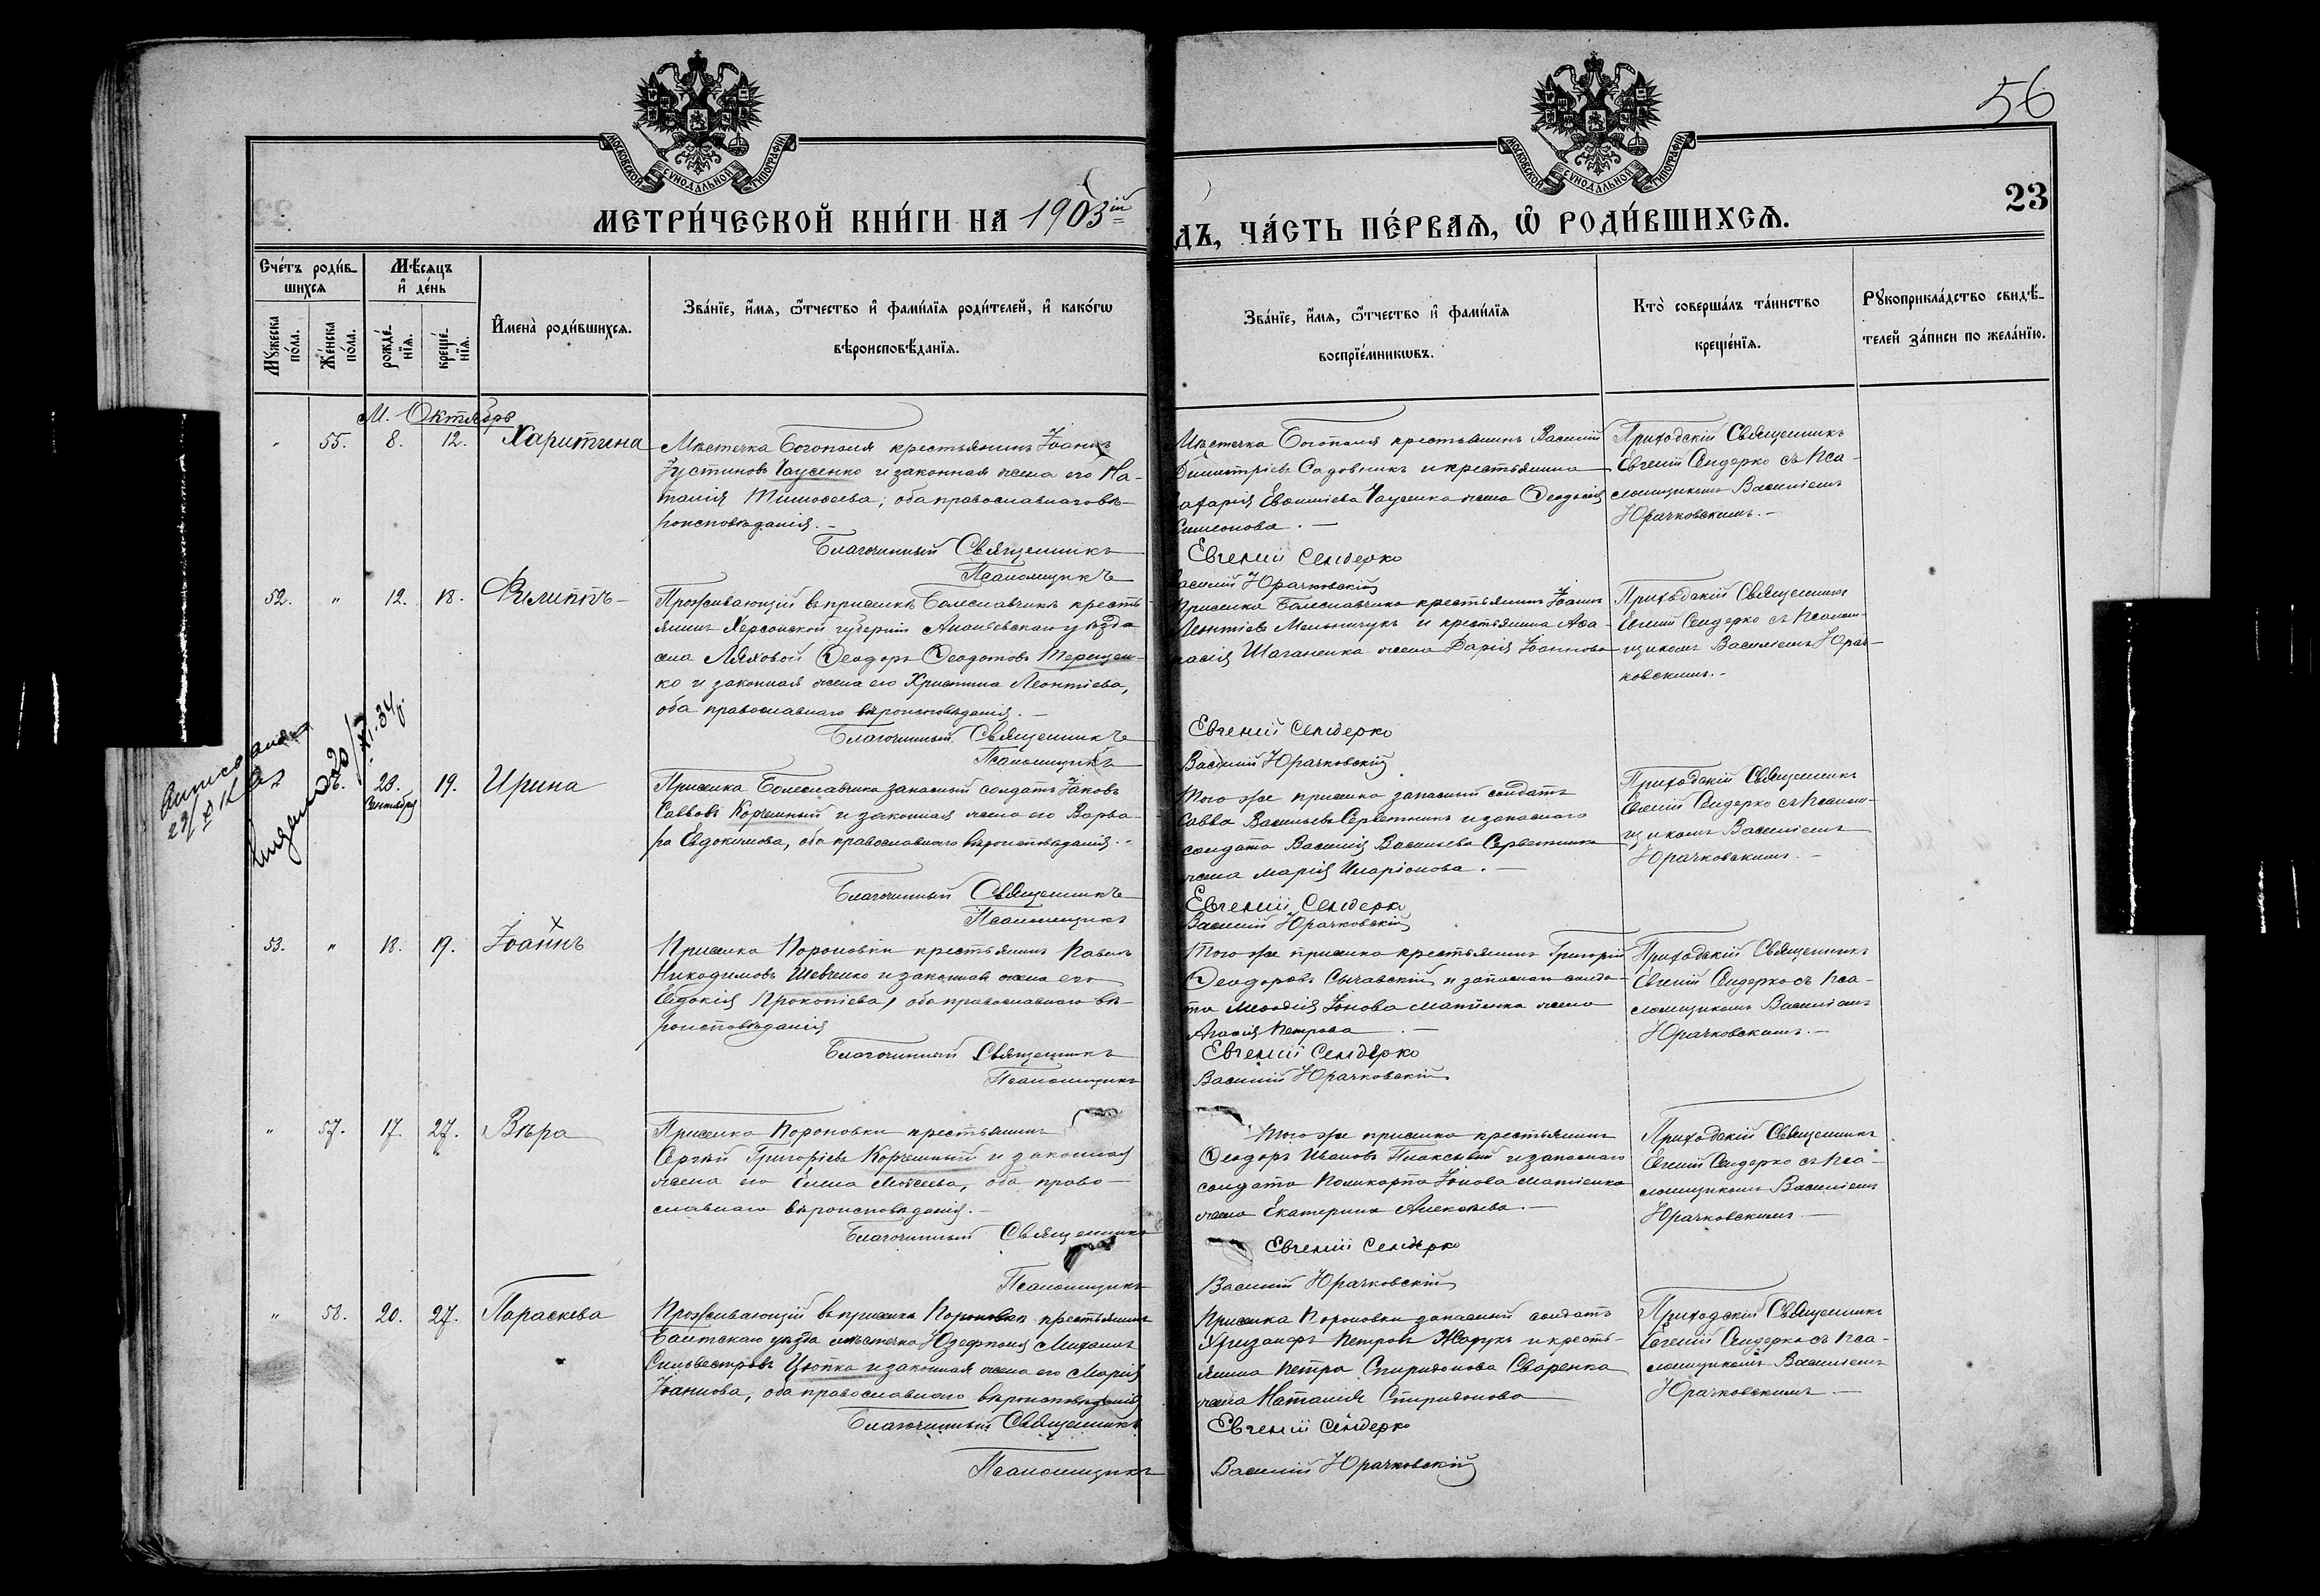 56
МОСКОВСКОЙ СѴНОДАЛЬНОЙ ТИПОГРАФІИ
МОСКОВСКОЙ СѴНОДАЛЬНОЙ ТИПОГРАФІИ
23
МЕТРИ́ЧЕСКОЙ КНИ́ГИ НА 1903ій
ДЪ, ЧА́СТЬ ПЕ́РВАѦ, Ѽ РОДИ́ВШИХСѦ.
Сче́тъ роди́в-
шихсѧ
Мꙋ́жеска по́ла.
Же́нска по́ла.
Мѣ́сѧцъ
и҆ де́нь
рожде́-
нїѧ.
креще́-
нїѧ.
И҆мена̀ роди́вшихсѧ.
Зва́нїе, и҆́мѧ, ѻ҆́тчество и҆ фами́лїѧ роди́телей, и҆ како́гѡ
вѣроисповѣ́данїѧ.
Зва́нїе, и҆́мѧ, ѻ҆́тчество и҆ фами́лїѧ
воспрїе́мникѡвъ.
Кто̀ соверша́лъ та́инство
креще́нїѧ.
Рꙋкоприкла́дство свидѣ́-
телей за́писи по жела́нїю.
М. Октябрь
55. 8. 12. Харитина
Мѣстечка Богополя крестьянинъ Іоаннъ
Іустиновъ Чаусенко и законная жена его На-
талія Тимофеева; оба православнаго вѣ-
роисповѣданія.
Благочинный Священникъ
Псаломщикъ
Мѣстечка Богополя крестьянинъ Василій
Димитріевъ Садовникъ и крестьянина
Захарія Евфиміева Чаусенка жена Феодосія
Симеонова.
Евгеній Сендерко
Василій Юрачковскій
Приходскій Священникъ
Евгеній Сендерко съ Пса-
ломщикомъ Василіемъ
Юрачковскимъ.
52. " 12. 18. Филиппъ
Проживающій въ приселкѣ Болеславчикъ кресть-
янинъ Херсонской губерніи Ананьевскаго уѣзда
села Ляховой Феодоръ Феодотовъ Терещен-
ко и законная жена его Христина Леонтіева,
оба православнаго вѣроисповѣданія.
Благочинный Священникъ
Псаломщикъ
Приселка Болеславчика крестьянинъ Іоаннъ
Леонтіевъ Мельничукъ и крестьянина Афа-
насія Шаганенка жена Дарія Іоаннова
Евгеній Сендерко
Василій Юрачковскій
Приходскій Священникъ
Евгеній Сендерко съ Псалом-
щикомъ Василіемъ Юрач-
ковскимъ.
20/XI.34 г.
28. Сентября 19. Ирина
Приселка Болеславчика запасный солдатъ Іаковъ
Саввовъ Корчемный и законная жена его Варва-
ра Евдокимова, оба православнаго вѣроисповѣданія.
Благочинный Священникъ
Псаломщикъ
Того же приселка запасный солдатъ
Савва Васильевъ Серветникъ и запаснаго
солдата Василія Васильева Серветника
жена Марія Иларіонова.
Евгеній Сендерко
Василій Юрачковскій
Приходскій Священникъ
Евгеній Сендерко съ Псалом-
щикомъ Василіемъ
Юрачковскимъ.
53. " 18. 19. Іоаннъ
Приселка Пороновки крестьянинъ Павелъ
Никодимовъ Шевченко и законная жена его
Евдокія Прокопіева, оба православнаго вѣ-
роисповѣданія
Благочинный Священникъ
Псаломщикъ
Того же приселка крестьянинъ Григорій
Феодоровъ Сычавскій и запаснаго солда-
та Мефодія Іонова Матіенка жена
Агафія Петрова.
Евгеній Сендерко
Василій Юрачковскій
Приходскій Священникъ
Евгеній Сендерко съ Пса-
ломщикомъ Василіемъ
Юрачковскимъ.
" 57. 17. 27. Вѣра
Приселка Пороновки крестьянинъ
Сергѣй Григоріевъ Корчемный и законная
жена его Елена Моѵсеева, оба право-
славнаго вѣроисповѣданія.
Благочинный Священникъ
Псаломщикъ
Того же приселка крестьянинъ
Феодоръ Ивановъ Плаксивый и запаснаго
солдата Поликарпа Іонова Матіенка
жена Екатерина Алексѣева.
Евгеній Сендерко
Василій Юрачковскій
Приходскій Священникъ
Евгеній Сендерко съ Пса-
ломщикомъ Василіемъ
Юрачковскимъ.
" 58. 20. 27. Параскева
Проживающій въ приселкѣ Пороновкѣ крестьянинъ
Балтскаго уѣзда мѣстечка Юзефполя Михаилъ
Сильвестровъ Цюпка и законная жена его Марія
Іоаннова, оба православнаго вѣроисповѣданія
Благочинный Священникъ
Псаломщикъ
Приселка Пороновки запасный солдатъ
Хризанфъ Петровъ Жадукъ и кресть-
янина Петра Спиридонова Сваренка
жена Наталія Спиридонова
Евгеній Сендерко
Василій Юрачковскій
Приходскій Священникъ
Евгеній Сендерко съ Пса-
ломщикомъ Василіемъ
Юрачковскимъ